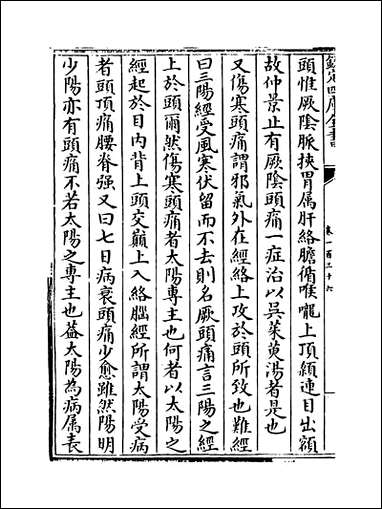 欽定四庫全書
卷一百三十六
頭惟厥陰脈挾胃属肝絡膽循喉嚨上頂顙連目出額
故仲景止有厥陰頭痛一症治以吳茱萸湯者是也
又傷寒頭痛謂邪氣外在經絡上攻於頭所致也難經
曰三陽經受風寒伏留而不去則名厥頭痛言三陽之經
上於頭爾然傷寒頭痛者太陽專主也何者以太陽之
經起於目内背上頭交巔上入絡腦經所謂太陽受病
者頭頂痛腰脊强又曰七日病衰頭痛少愈雖然陽明
少陽亦有頭痛不若太陽之專主也葢太陽為病属表